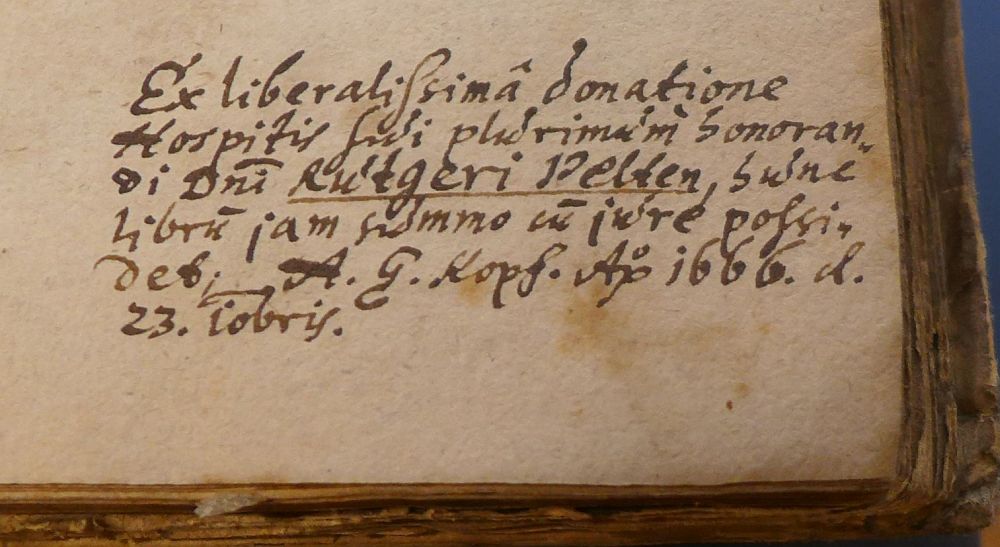 Ex liberalissimâ donatione
Hospitis sui plurimum honoran-
di Dnī Rutgeri Pelten, hunc
librū jam summo cū jure possi-
det; A. G. Kopf. Aō 1666. d.
23. iobris.